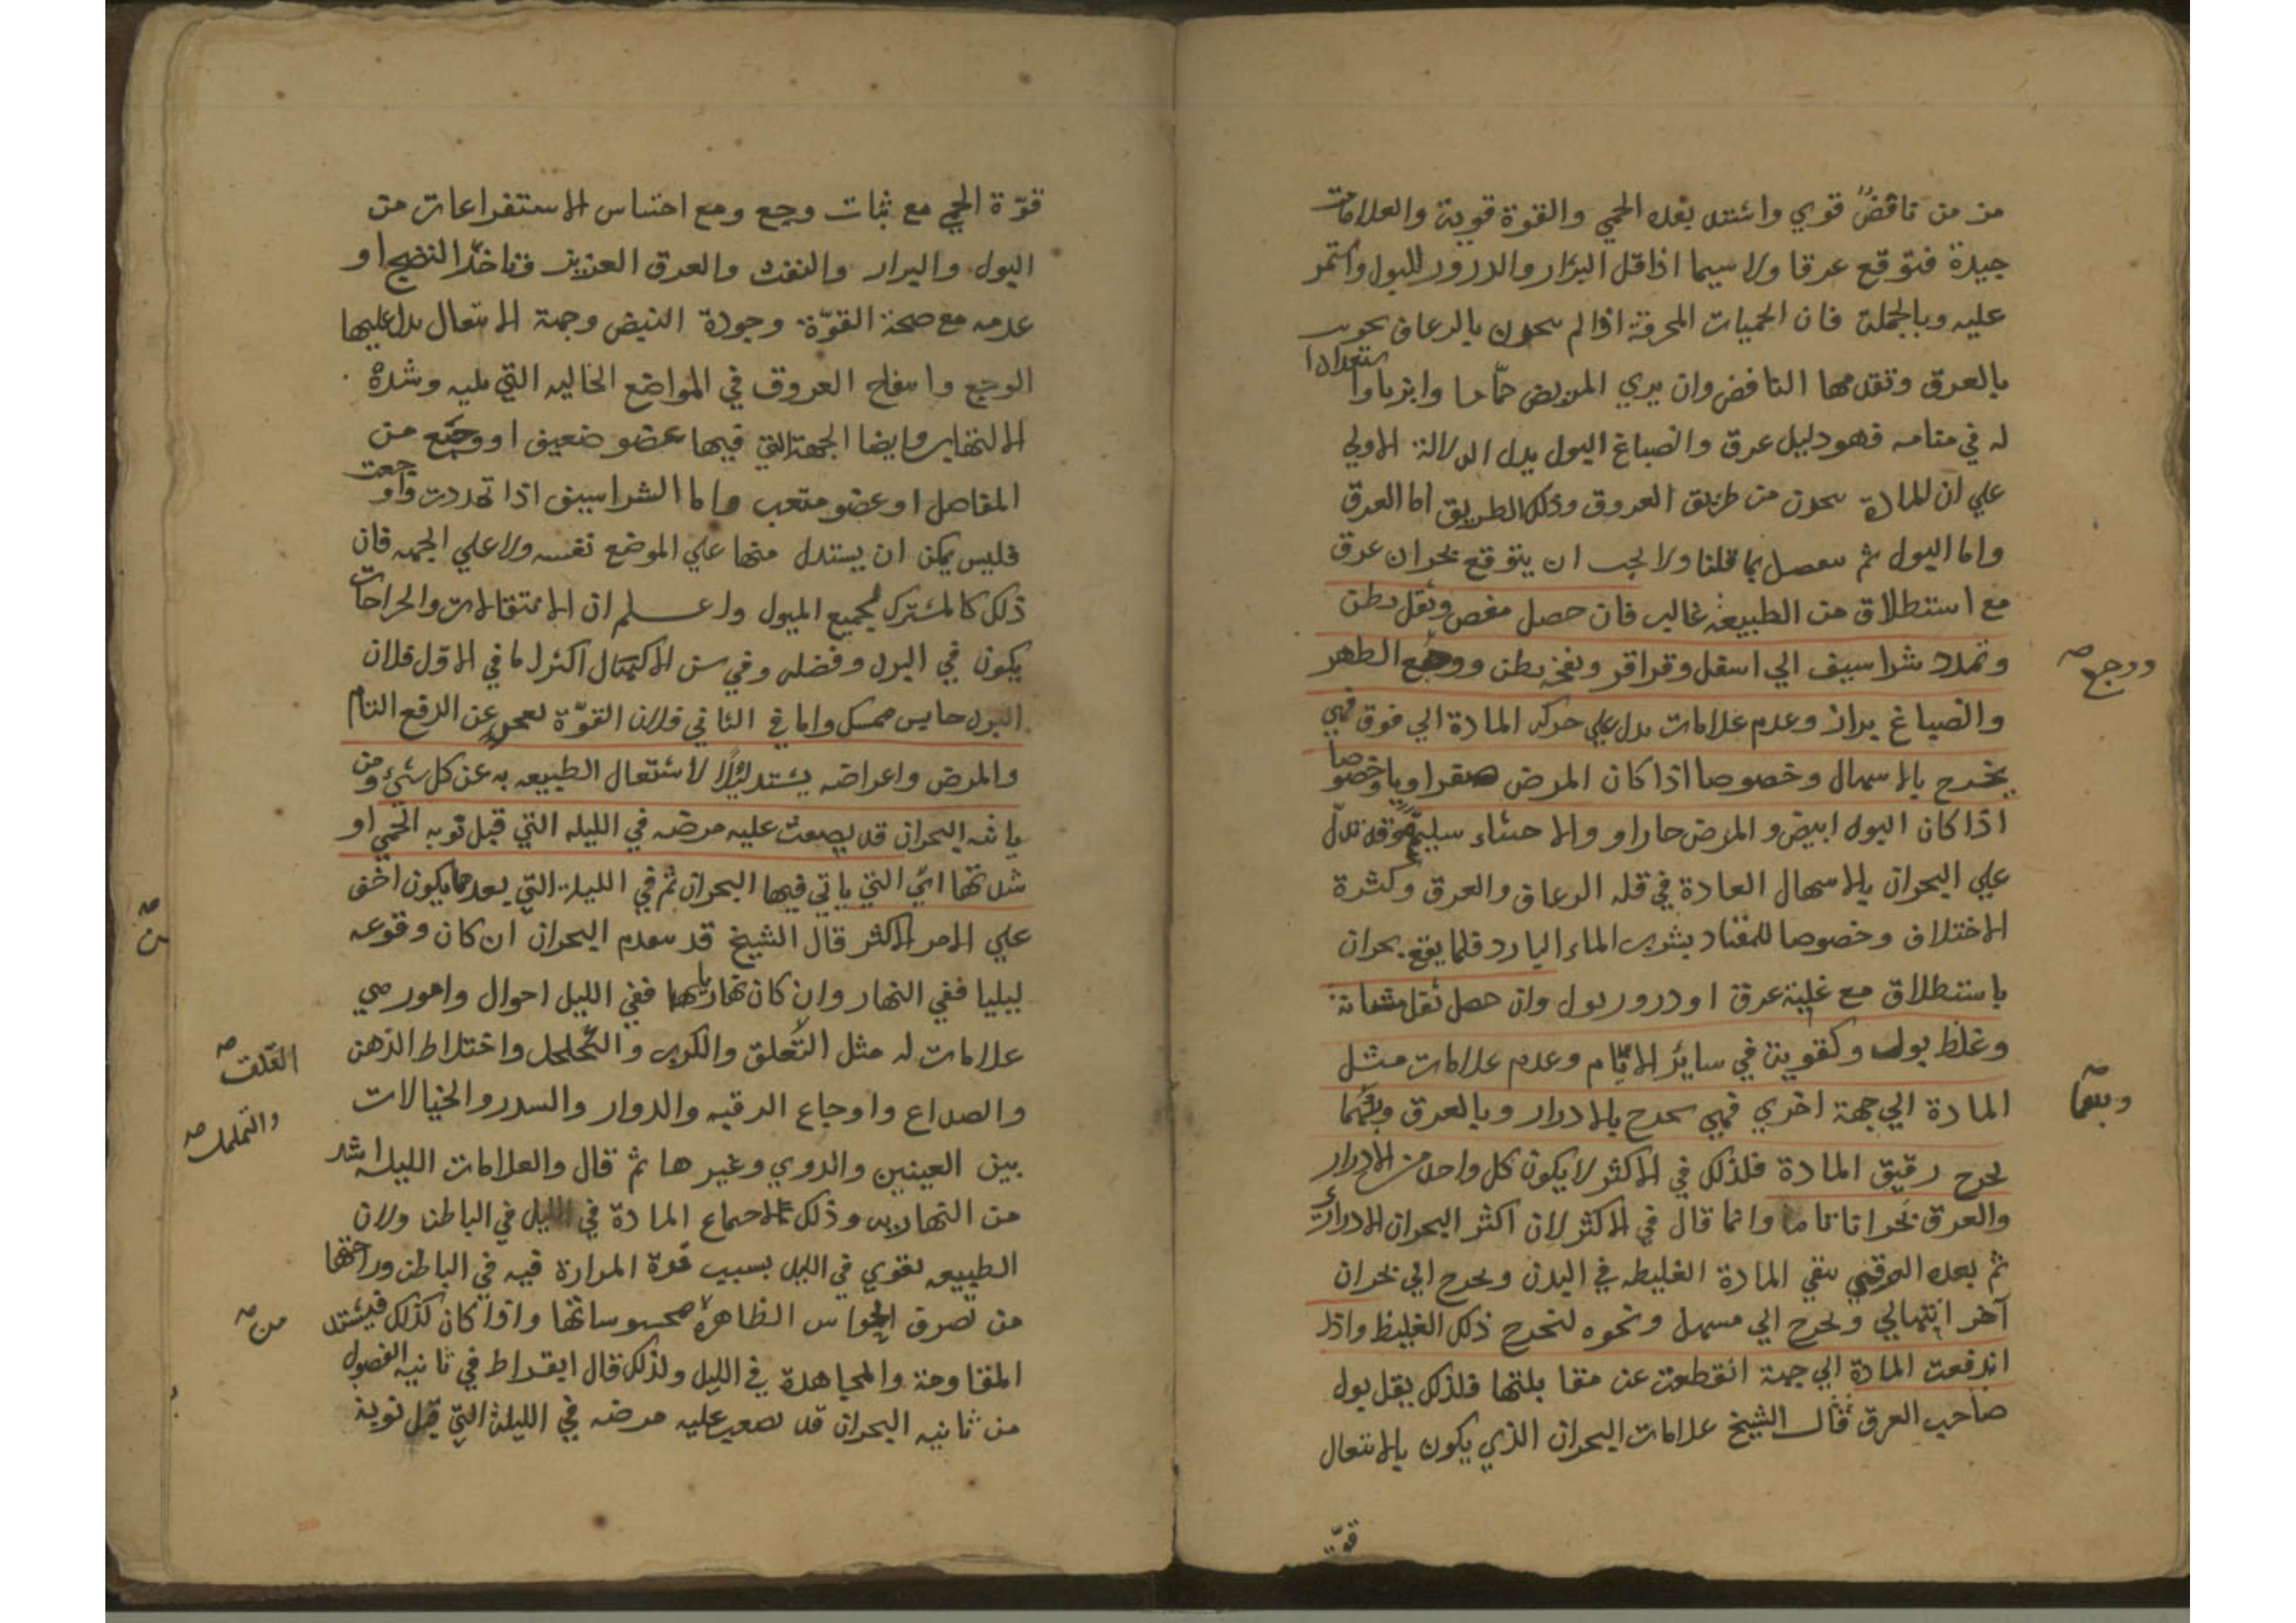 من من نافض قوي واشتد بعده الحمي والقوة قوية والعلامات
جيدة فتوقع عرقا ولا سيما اذا قل البراز والدرور للبول واستمر
عليه وبالجملة فان الحميات المحرقة اذا لم سحرن بالرعاف بحرنت
بالعرق وتقدمها النافض وان يري المريض حمّاما وابزنا واستعدادا
له في منامه فهو دليل عرق وانصباغ البول يدل الدلالة الاولي
علي ان المادة سحرن من طريق العروق وذلك الطريق اما العرق
واما البول ثم سفصل بما قلنا ولا يجب ان يتوقع بحران عرق
مع استطلاق من الطبيعة غالب فان حصل مغص وثقل بطن
وتمدد شراسيف الي اسفل وقراقر ونفخ بطن ووجع الظهر
ووجع صح
وانصباغ براز وعدم علامات تدل علي حركه المادة الي فوق فهي
يخرج بالاسهال وخصوصا اذا كان المرض صفراويا وخصوصا
اذا كان البول ابيض والمرض حارا والاحشاء سليمة وقد تدل
علي البحران بالاسهال العادة في قله الرعاف والعرق وكثرة
الاختلاف وخصوصا للمعتاد بشرب الماء البارد قلما يقع بحران
باستطلاق مع غلبة عرق او درور بول وان حصل ثقل مثانة
وغلظ بول وكقوية في ساير الايام وعدم علامات مثل
المادة الي جهة اخري فهي سحرج بالادرار وبالعرق وبعما
وبعما صح
يخرج رقيق المادة فلذلك في الاكثر لا يكون كل واحد من الادرار
والعرق بحرانا تاما وانما قال في الاكثر لان اكثر البحران الادراري
ثم بعده العرقي سقي المادة الغليظه في البدن ويحرج الي بحران
آخر انتهالي ويحرج الي مسهل ونحوه لتخرج ذلك الغليظ واذا
اندفعت المادة الي جهة انقطعت عن مقابلتها فلذلك يقل بول
صاحب العرق قال الشيخ علامات البحران الذي يكون بالانتعال
قوّة
قوّة الحمي مع ثبات وجع ومع احتباس الاستفراغات من
البول والبراز والنفث والعرق العزيز فتاخر النضج او
عدمه مع صحة القوّة وجودة النبض وجهة الانتعال يدل عليها
الوجع وانتفاخ العروق في المواضع الخاليه التي تليه وشدة
الالتهاب وايضا الجهة التي فيها عضو ضعيف او وجع من
المفاصل او عضو متعب واما الشراسيف اذا تمددت واوجعت
فليس يمكن ان يستدل منها علي الموضع نفسه ولا علي الجهه فان
ذلك كالمشترك لجميع الميول واعلم ان الانتقالات والخراجات
يكون في البرد وفضله وفي سن الاكتهال اكثر اما في الاول فلان
البرد حابس ممسك واما في الثاني فلان القوّة تعجز عن الدفع التام
والمرض واعراضه يشتد ليلا لاشتعال الطبيعه به عن كل شيء ومن
ياته البحران قد يصعب عليه مرضه في الليله التي قبل نوبه الحمي او
شدتها ايّ التي ياتي فيها البحران ثم في الليلة التي بعدها يكون اخف
علي الامر الاكثر قال الشيخ قد تتقدم البحران ان كان وقوعه
من صح
ليليا ففي النهار وان كان نهاريا ففي الليل احوال وامور هي
علامات له مثل التعلق والكرب والتحلحل واختلاط الذهن
القلق صح
والتململ صح
والصداع واوجاع الرقبه والدوار والسدر والخيالات
بين العينين والدوي وغيرها ثم قال والعلامات الليله اشد
من النهاريه وذلك لاحماع المادة في الليل في الباطن ولان
الطبيعه تقوي في الليل بسبب قوة الحرارة فيه في الباطن وراحتها
من تصرف الحواس الظاهرة محسوساتها واذا كان كذلك فيشتد
من صح
المقاومة والمجاهدة في الليل ولذلك قال ابقراط في ثانية الفصول
من ثانيه البحران قد تصعب عليه مرضه في الليلة التي قبل نوبة